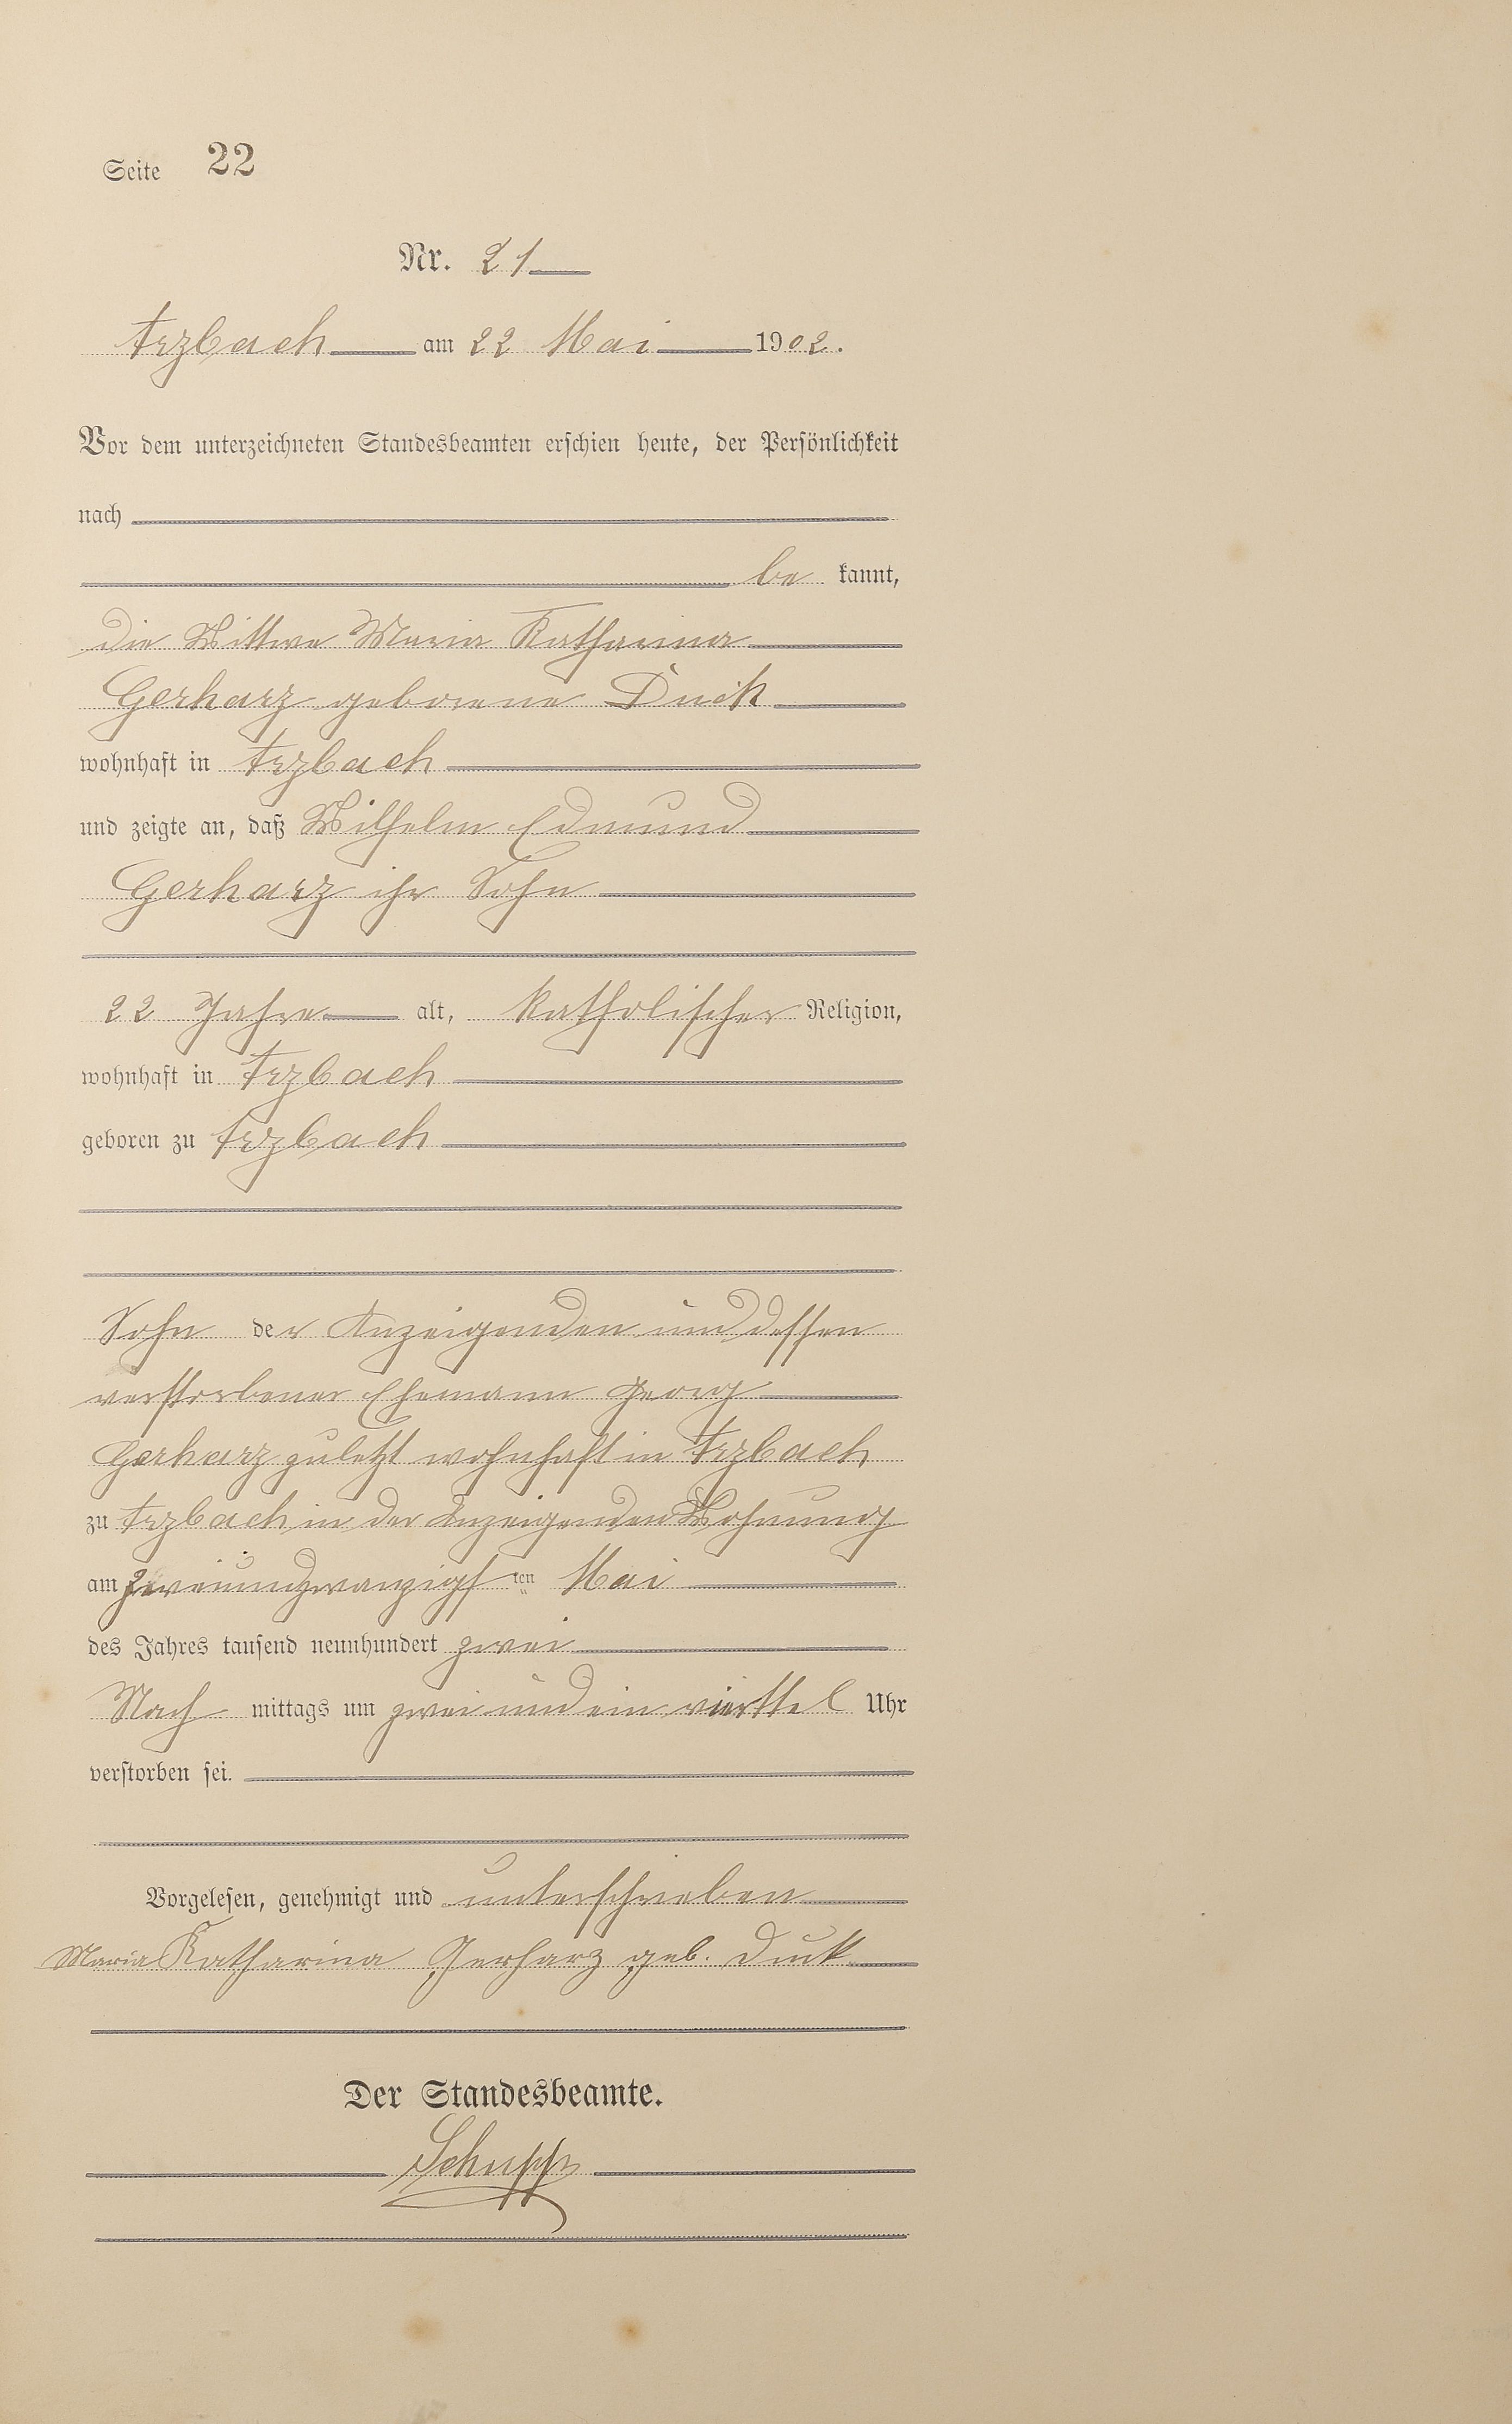 Seite 22
Nr. 21
Arzbach am 22 Mai 1902.
Vor dem unterzeichneten Standesbeamten erschien heute, der Persönlichkeit
nach
be kannt,
die Wittwe Maria Katharina
Gerharz geborene Duck
wohnhaft in Arzbach
und zeigte an, daß Wilhelm Edmund
Gerharz ihr Sohn
22 Jahre alt, katholischer Religion,
wohnhaft in Arzbach
geboren zu Arzbach
Sohn der Anzeigenden und dessen
verstorbener Ehemann Georg
Gerharz zuletzt wohnhaft in Arzbach
zu Arzbach in der Anzeigenden Wohnung
am zweiundzwanzigsten Mai
des Jahres tausend neunhundert zwei
Nach mittags um zwei und ein vierttel Uhr
verstorben sei.
Vorgelesen, genehmigt und unterschrieben
Maria Katharina Gerharz geb. Duck
Der Standesbeamte.
Schupp